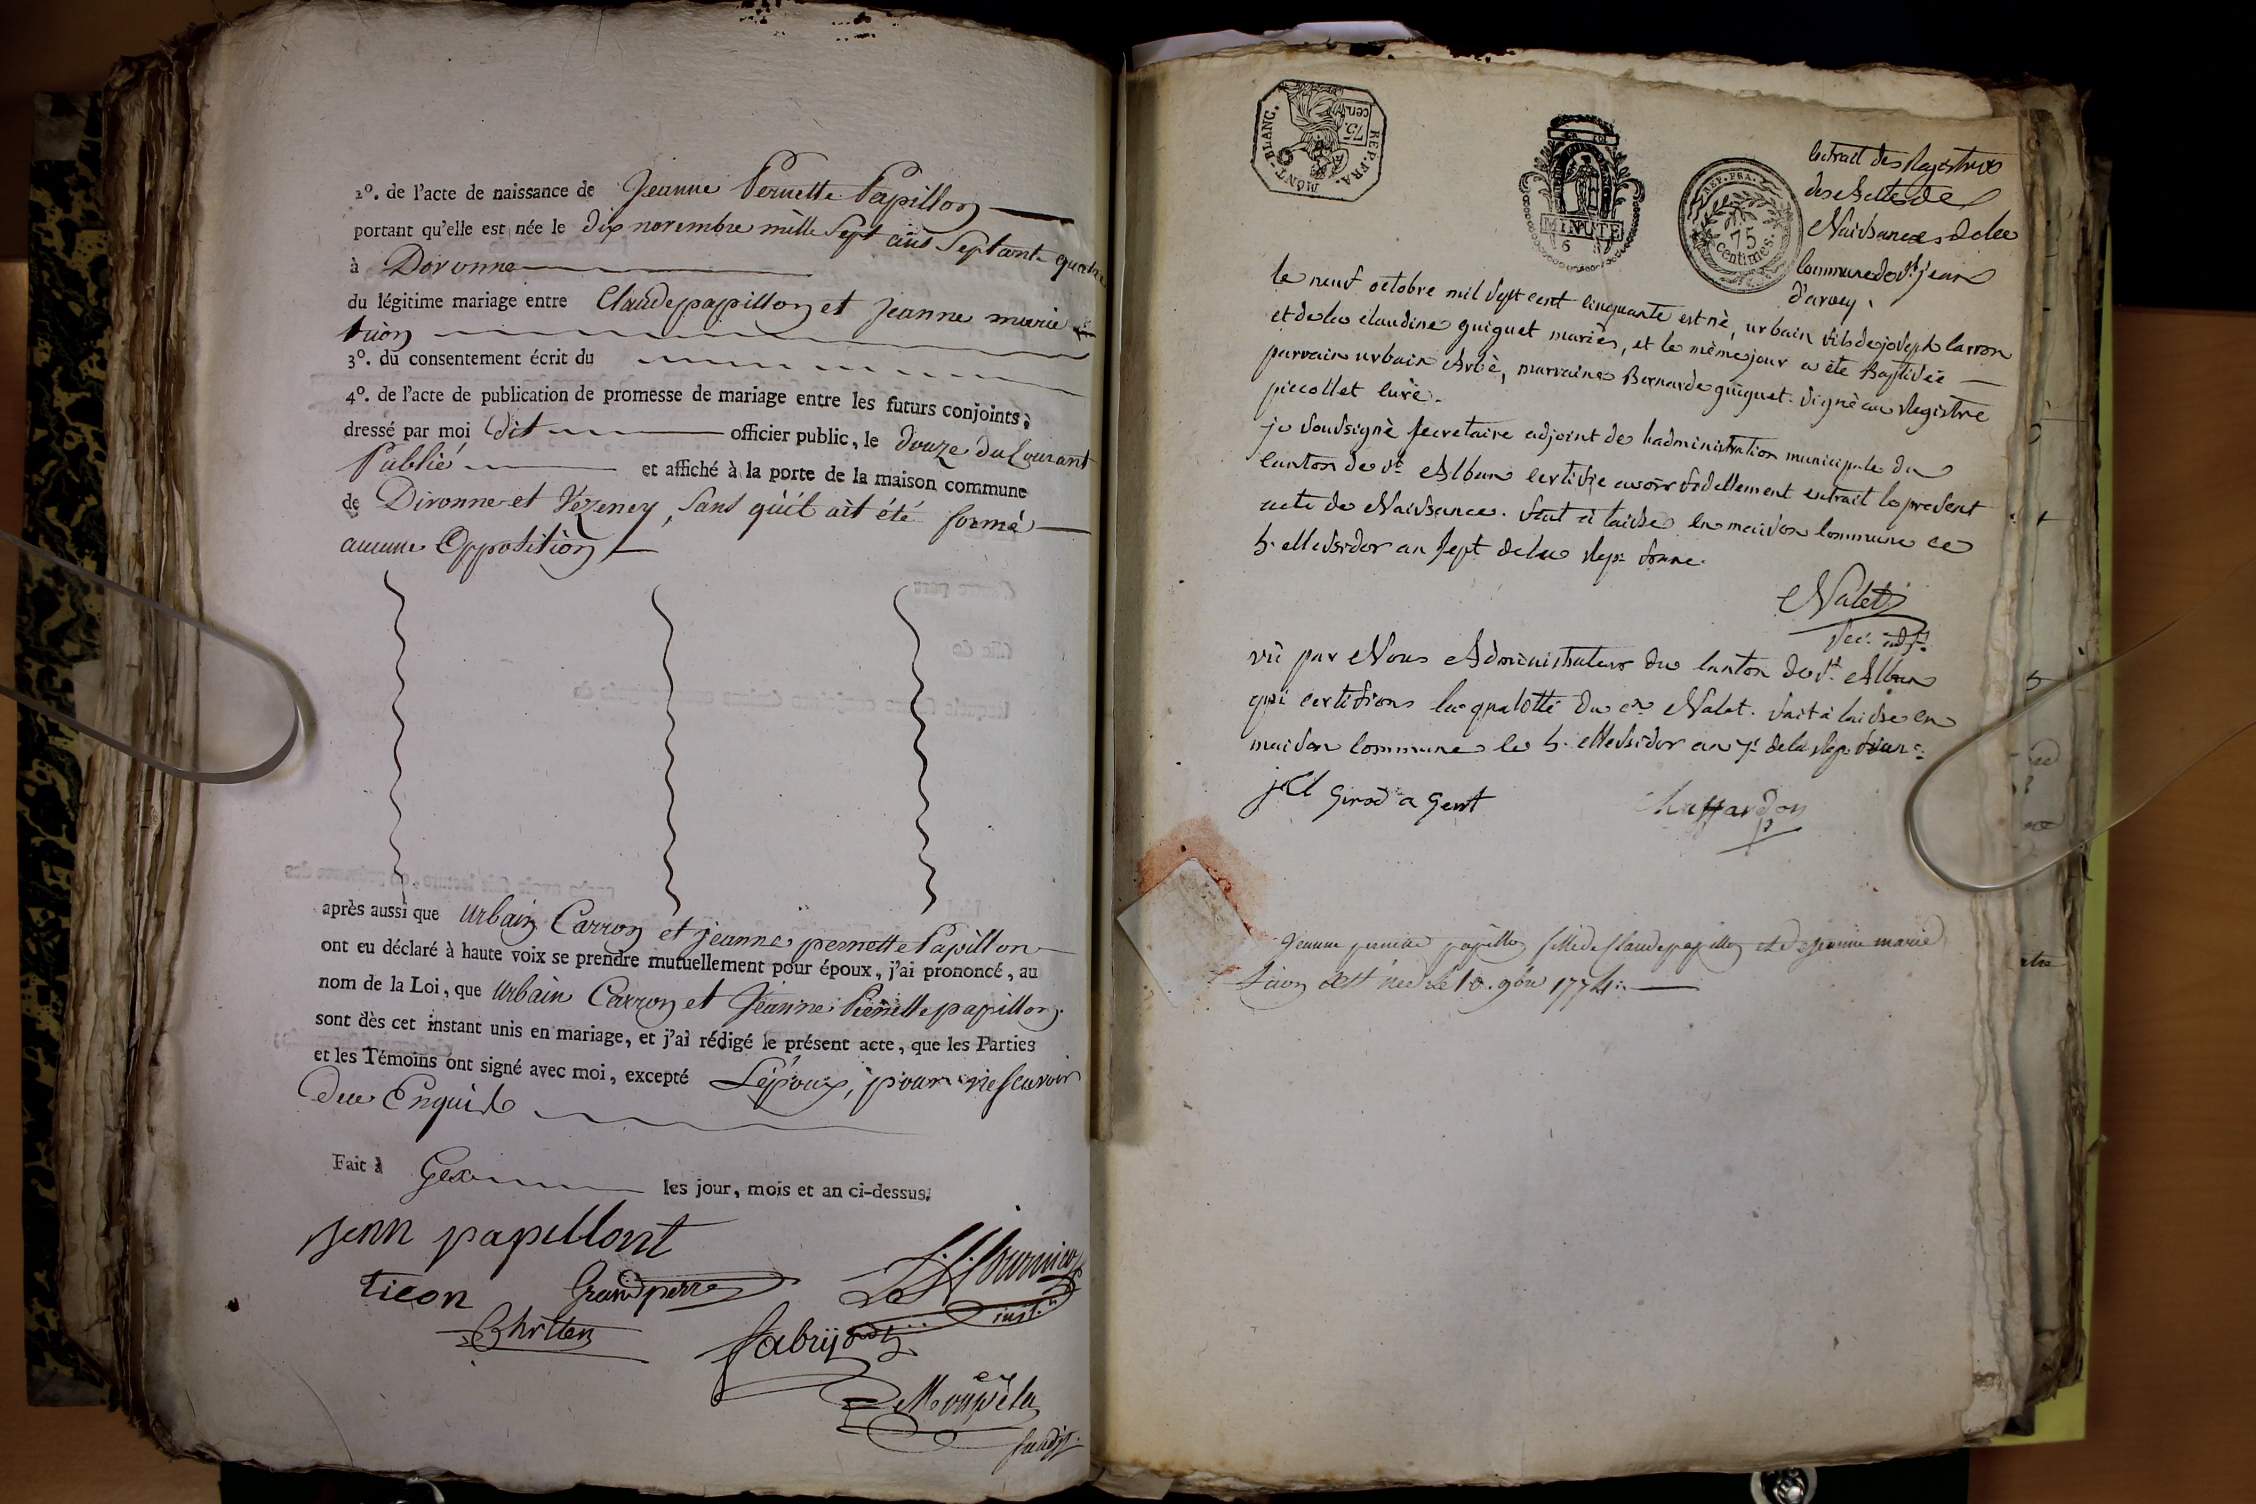 2°. de l'acte de naissance de Jeanne Pernette Papillon
portant qu'elle est née le dix novembre mille Sept cens Septante quatre
à Divonne
du légitime mariage entre Claude papillon et jeanne marie
tión
3°. du consentement écrit du
4°. de l'acte de publication de promesse de mariage entre les futurs conjoints;
dressé par moi dit officier public, le douze du Courant
Publié et affiché à la porte de la maison commune
de Divonne et Vézeney, sans qu'il ait été formé
aucune Opposition
après aussi que urbain Carron et jeanne pernette Papillon
ont eu déclaré à haute voix se prendre mutuellement pour époux, j'ai prononcé, au
nom de la Loi, que urbain Carron et Jeanne Pernette papillon
sont dès cet instant unis en mariage, et j'ai rédigé le présent acte, que les Parties
et les Témoins ont signé avec moi, excepté L'époux, pour ne scavoir
de ce Enquis
Fait à Gex les jour, mois et an ci-dessus.
jenn papillont
ticon Grandperre
fabry
MONT-BLANC. REP. FRA.
75. cent.
MINUTE
REP. FRA.
75 centimes.
Extrait des Registres
des Actes de
Naissances de la
Commune de st jean
d'arvey.
le neuf octobre mil sept cent cinquante est nè, urbain fils de joseph carron
et de la claudine guiguet mariés, et le mème jour a ètè Baptisèè
parrain urbain Arbè, marraine Bernarde guiguet. signè au Registre
piccollet curè.
je soussignè secretaire adjoint de l'administration municipale du
canton de st Alban certifie avoir fidellement extrait le present
acte de Naissance. fait à laisse en maison commune ce
5. Messidor an sept de la rep. franc.
Nalet
sec. adjt.
vù par Nous Administrateur du canton de st Alban
qui certifions la qualitté du cn Nalet. fait à laisse en
maison commune le 5. Messidor an 7. de la rep. franc.
j Cl Girod agent Chaffardon
jeanne pernette papillon fille de Claude papillon et de jeanne marie
tion est née le 10. 9bre 1774.